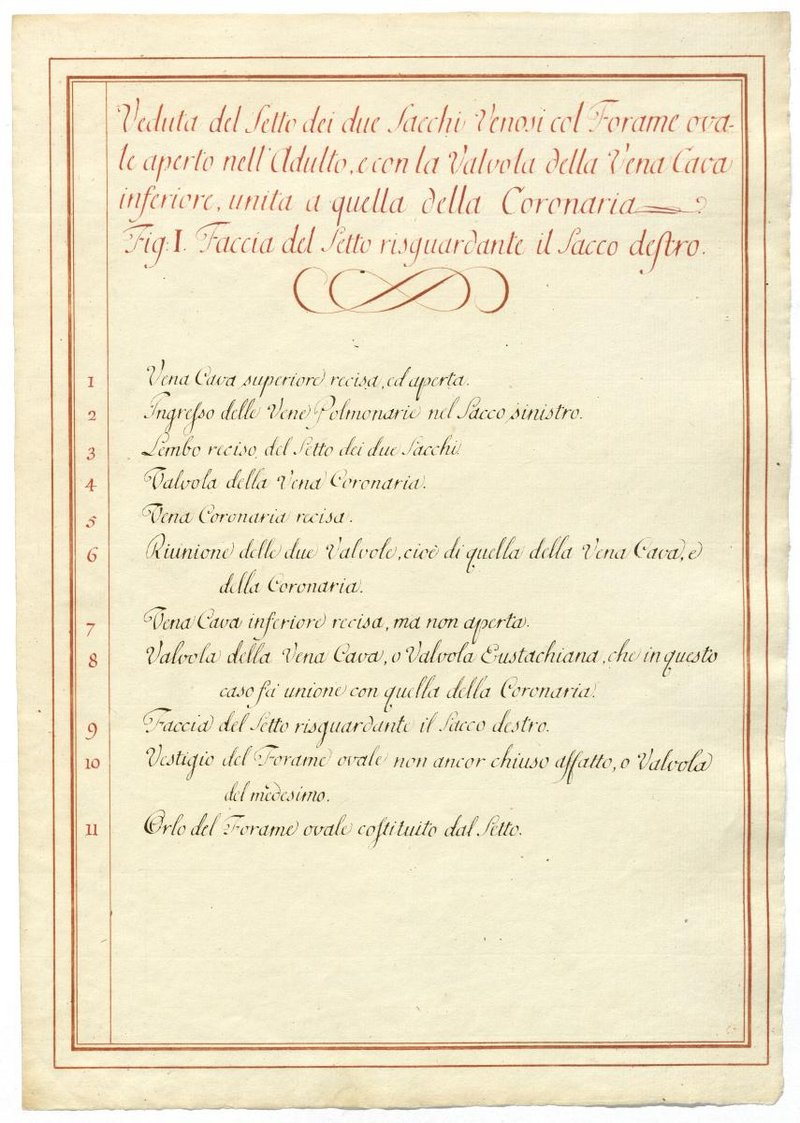 Veduta del Setto dei due Sacchi Venosi col Forame ova-
le aperto nell'Adulto, e con la Valvola della Vena Cava
inferiore, unita a quella della Coronaria
Fig. I. Faccia del Setto risguardante il Sacco destro.
1 Vena Cava superiore recisa, ed aperta.
2 Ingresso delle Vene Polmonarie nel Sacco sinistro.
3 Lembo reciso del Setto dei due Sacchi.
4 Valvola della Vena Coronaria.
5 Vena Coronaria recisa.
6 Riunione delle due Valvole, cioè di quella della Vena Cava, e
della Coronaria.
7 Vena Cava inferiore recisa, ma non aperta.
8 Valvola della Vena Cava, o Valvola Eustachiana, che in questo
caso fà unione con quella della Coronaria.
9 Faccia del Setto risguardante il Sacco destro.
10 Vestigio del Forame ovale non ancor chiuso affatto, o Valvola
del medesimo.
11 Orlo del Forame ovale costituito dal Setto.